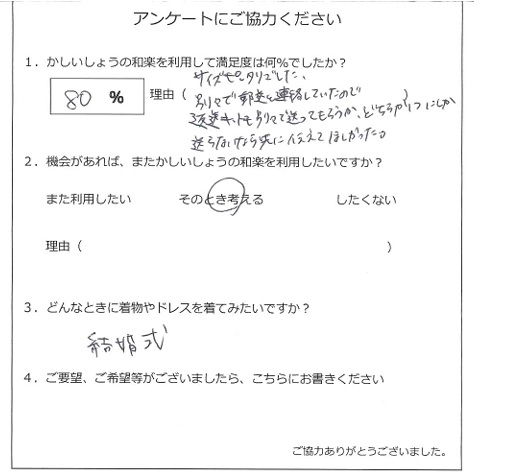 アンケートにご協力ください
1．かしいしょうの和楽を利用して満足度は何％でしたか？
80 %
理由（
サイズピッタリでした、
別々で郵送と連絡していたので
返送キットも別々で送ってもらうか、どちらか1つにしか
送らないなら先に伝えてほしかった。
2．機会があれば、またかしいしょうの和楽を利用したいですか？
また利用したい そのとき考える したくない
理由（ ）
3．どんなときに着物やドレスを着てみたいですか？
結婚式
4．ご要望、ご希望等がございましたら、こちらにお書きください
ご協力ありがとうございました。